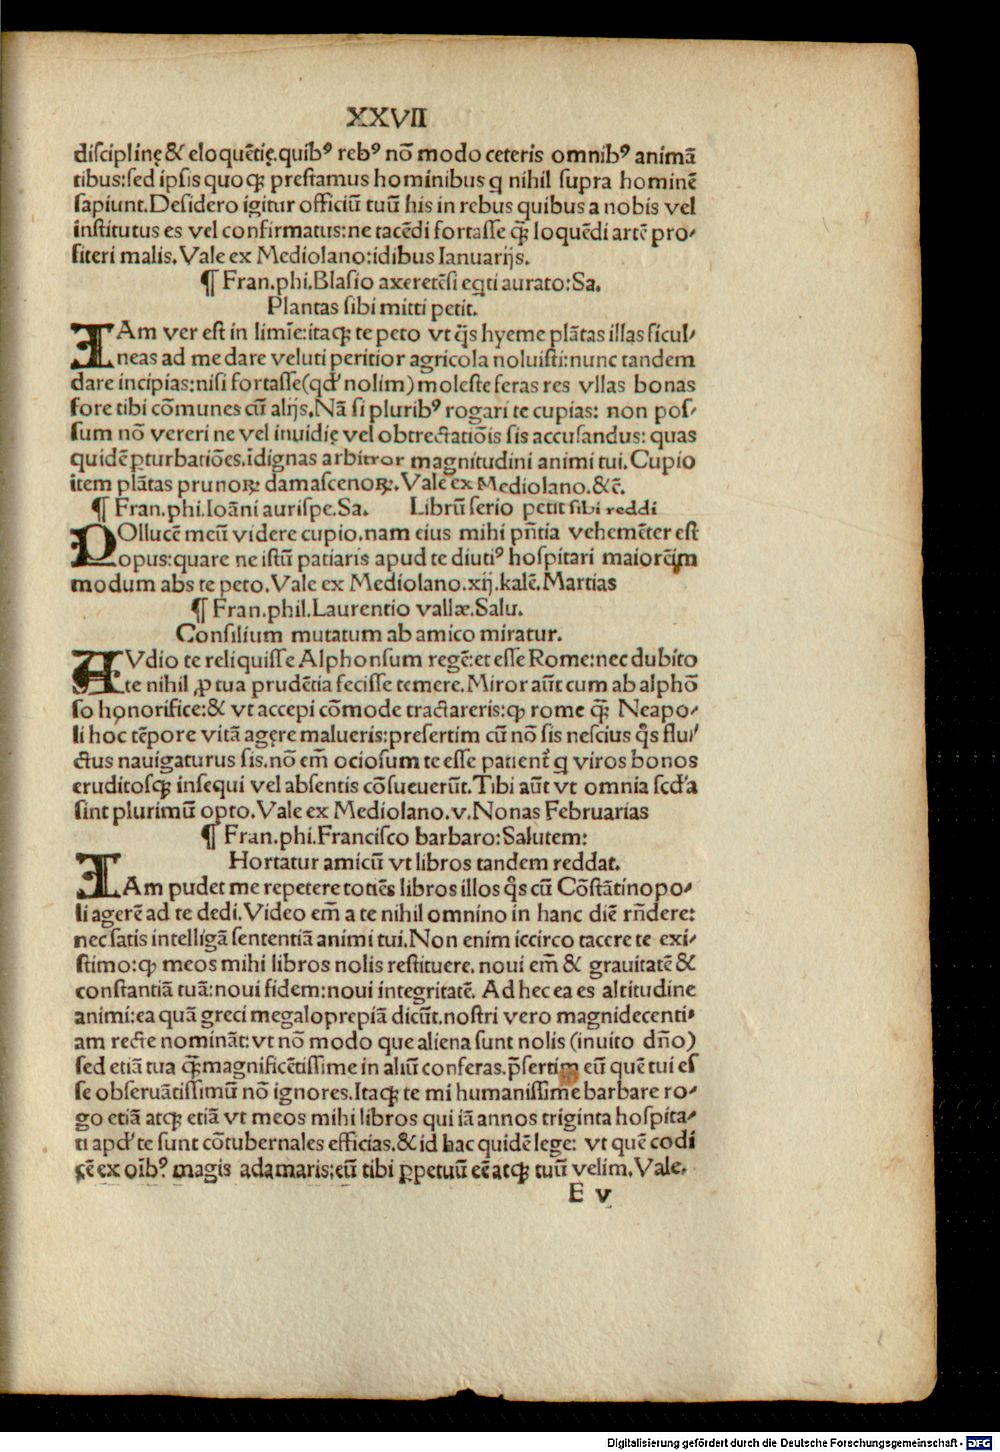 XXVII
disciplinę & eloquētię.quibꝰ rebꝰ nō modo ceteris omnibꝰ animā
tibus:sed ipsis quoqꝫ prestamus hominibus q nihil supra hominē
sapiunt.Desidero igitur officiū tuū his in rebus quibus a nobis vel
institutus es vel confirmatus:ne tacēdi fortasse qꝫ̄ loquēdi artē pro⸗
fiteri malis.Vale ex Mediolano:idibus Ianuarijs.
¶ Fran.phi.Blasio axeretēsi eq̄ti aurato:Sa.
Plantas sibi mitti petit.
IAm ver est in limīe:itaqꝫ te peto vt q̄s hyeme plātas illas sicul⸗
neas ad me dare veluti peritior agricola noluisti:nunc tandem
dare incipias:nisi fortasse(qd' nolim)moleste feras res vllas bonas
fore tibi cōmunes cū alijs.Nā si pluribꝰ rogari te cupias: non pos⸗
sum nō vereri ne vel inuidię vel obtrectatiōis sis accusandus: quas
quidē ꝑturbatiōes.īdignas arbitror magnitudini animi tui.Cupio
item plātas prunoꝝ damascenoꝝ.Vale ex Mediolano.&c̄.
¶ Fran.phi.Ioāni aurispe.Sa. Librū serio petit sibi reddi
POllucē meū videre cupio.nam eius mihi pn̄tia vehemēter est
opus:quare ne istū patiaris apud te diutiꝰ hospitari maiorēīm
modum abs te peto.Vale ex Mediolano.xij.kalē.Martias
¶ Fran.phil.Laurentio vallæ.Salu.
Consilium mutatum ab amico miratur.
AVdio te reliquisse Alphonsum regē:et esse Rome:nec dubito
te nihil ꝓ tua prudētia fecisse temere.Miror aūt cum ab alphō
so honorifice:& vt accepi cōmode tractareris:ꝙ rome qꝫ̄ Neapo⸗
li hoc tēpore vitā agere malueris:presertim cū nō sis nescius q̄s flu⸗
ctus nauigaturus sis.nō em̄ ociosum te esse patient᷑ q viros bonos
eruditosqꝫ insequi vel absentis cōsueuerūt.Tibi aūt vt omnia scd'a
sint plurimū opto.Vale ex Mediolano.v.Nonas Februarias
¶ Fran.phi.Francisco barbaro:Salutem:
Hortatur amicū vt libros tandem reddat.
IAm pudet me repetere totiēs libros illos q̄s cū Cōstātinopo⸗
li agerē ad te dedi.Video em̄ a te nihil omnino in hanc diē rn̄dere:
nec satis intelligā sententiā animi tui.Non enim iccirco tacere te exi⸗
stimo:ꝙ meos mihi libros nolis restituere. noui em̄ & grauitatē &
constantiā tuā:noui fidem:noui integritatē. Ad hec ea es altitudine
animi:ea quā greci megaloprepiā dicūt.nostri vero magnidecenti⸗
am recte nomināt:vt nō modo que aliena sunt nolis (inuito dn̄o)
sed etiā tua qꝫ̄magnificētissime in aliū conferas.p̄sertim eū quē tui es
se obseruātissimū nō ignores.Itaqꝫ te mi humanissime barbare ro⸗
go etiā atqꝫ etiā vt meos mihi libros qui iā annos triginta hospita⸗
ti apd' te sunt cōtubernales efficias.& id hac quidē lege: vt quē codi
cē ex oībꝰ magis adamaris:eū tibi ꝑpetuū eē atqꝫ tuū velim.Vale.
E v
Digitalisierung gefördert durch die Deutsche Forschungsgemeinschaft - DFG